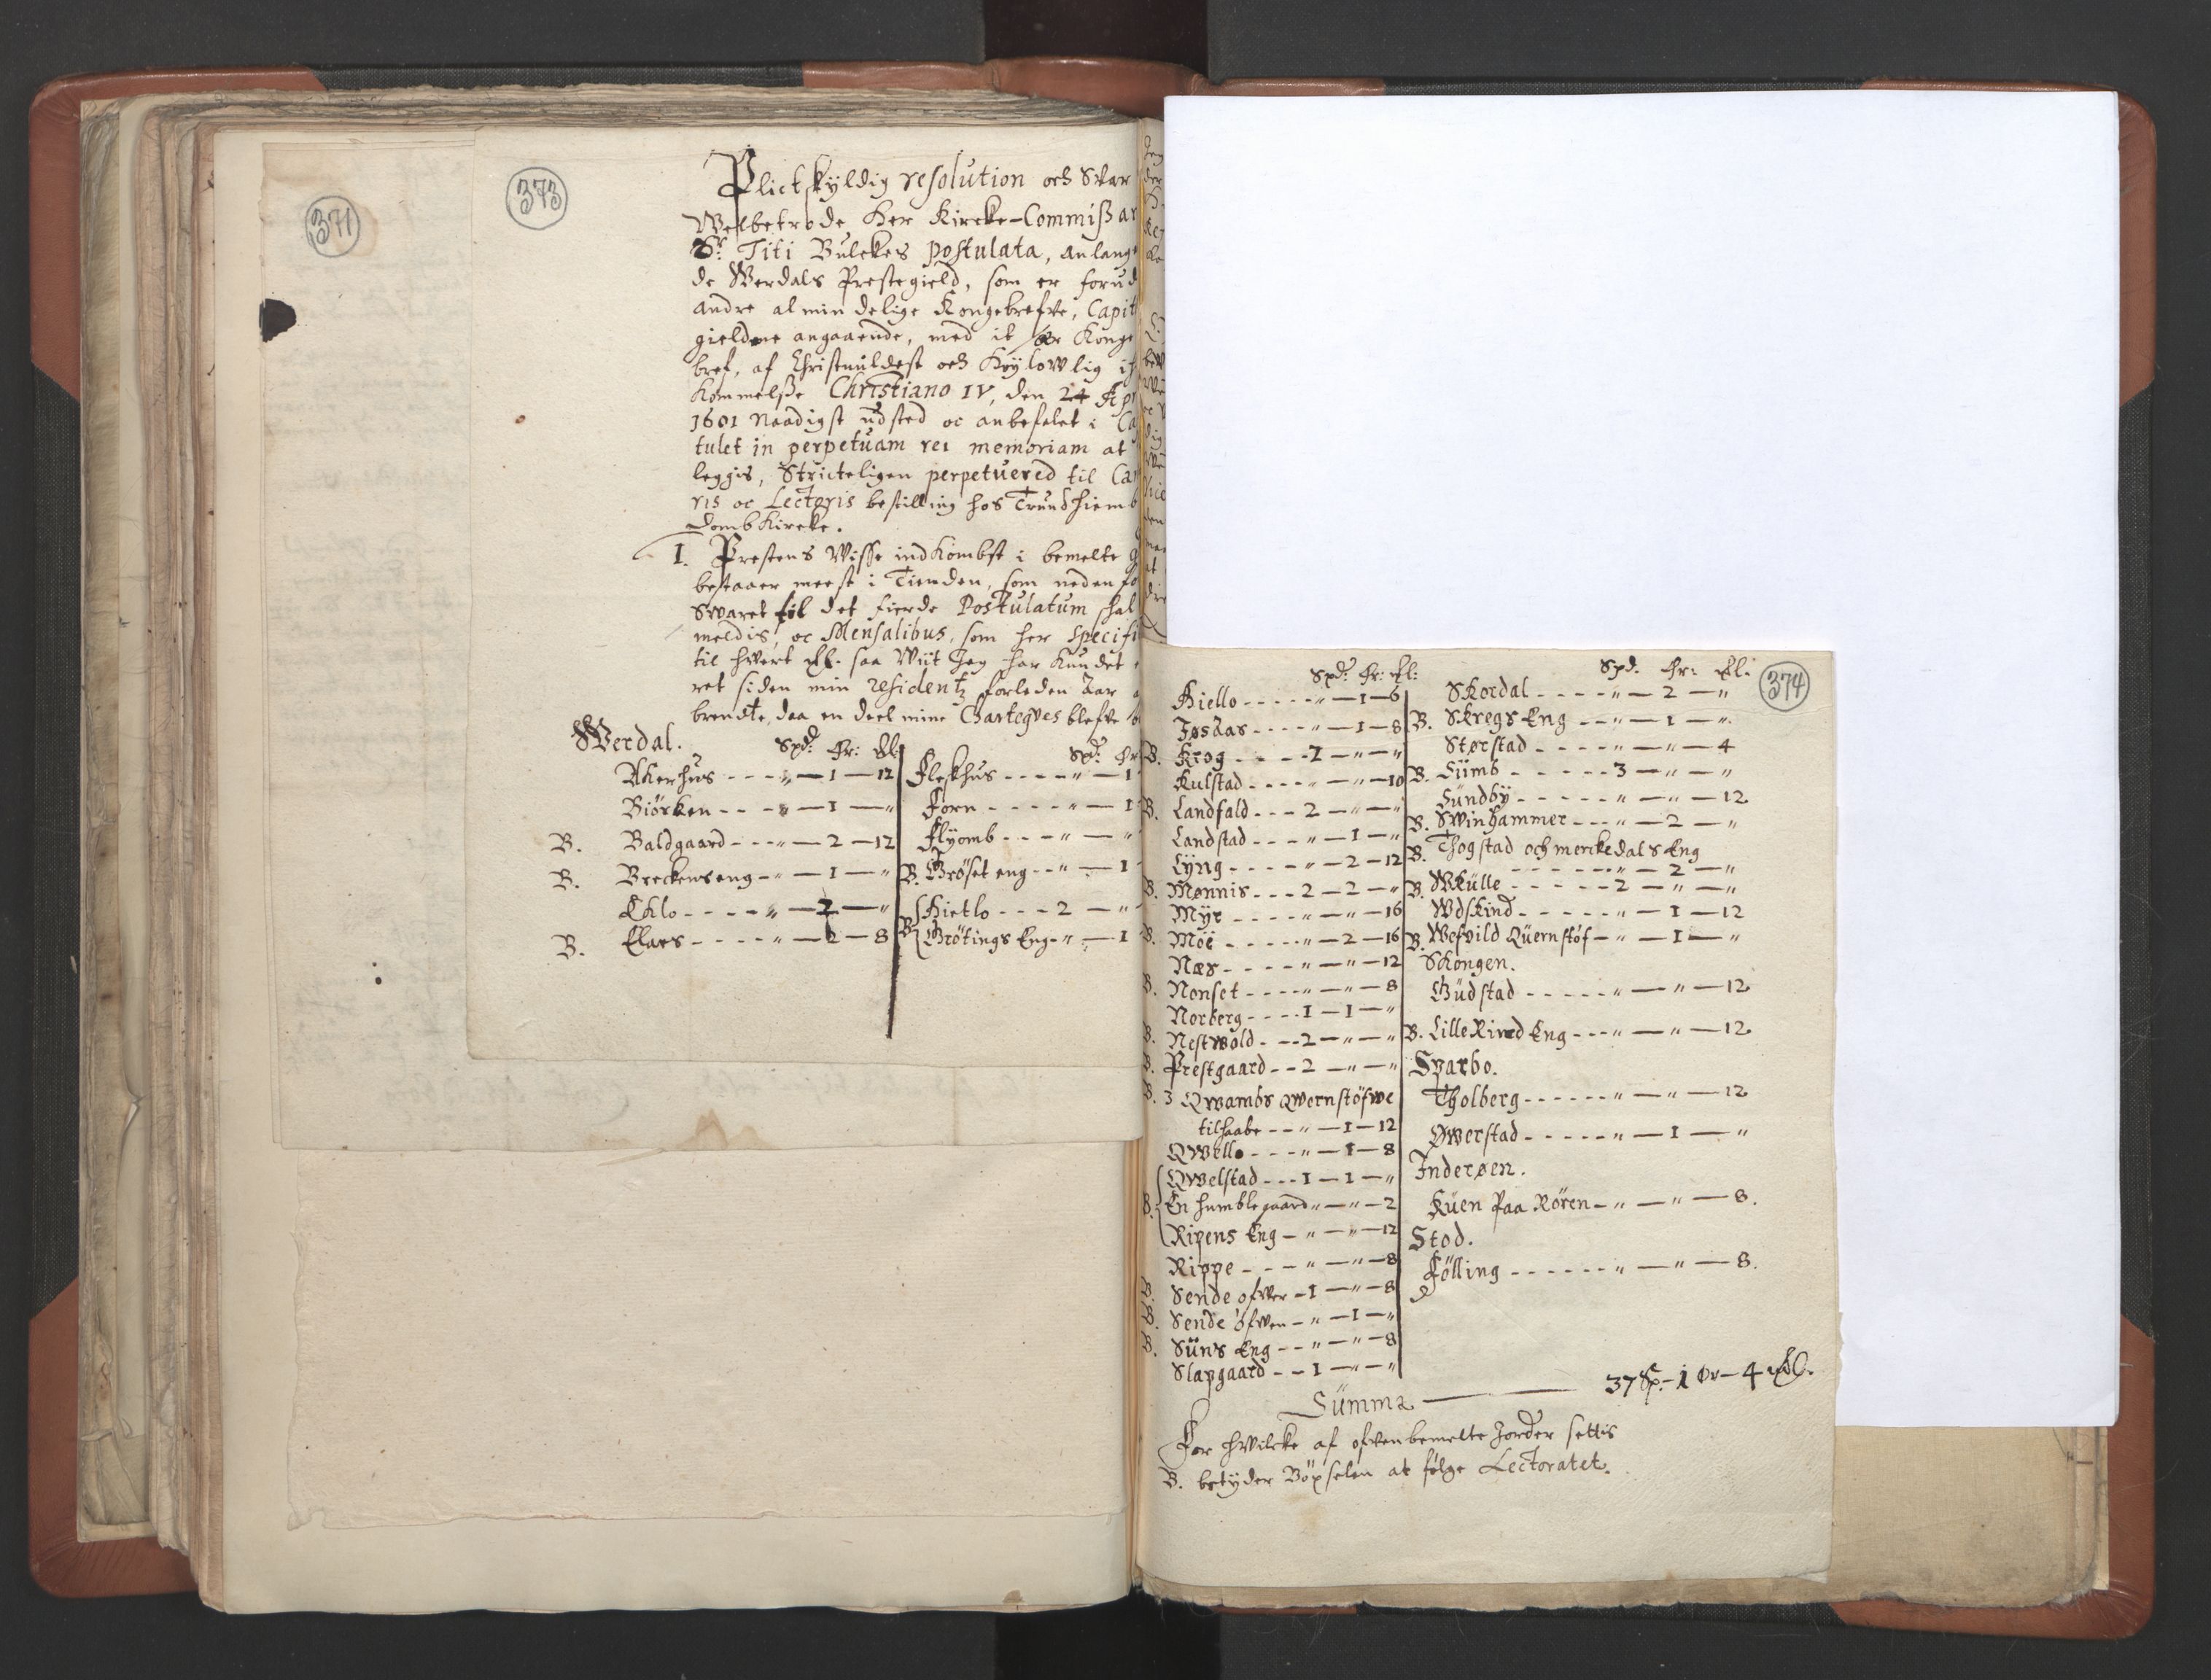 371
373
Plictskyldig resolution och Svar
Welbetrode Her Kircke-Commissar
Sr. Titi Bulckes postulata, anlang
de Werdals Prestegield, som er forud
andre almindelige Kongebrefve, Capit
gieldene angaaende, med it Konge
bref, af Christmildest och Høylowlig
Kommelsse Christiano IV, den 24 Apr
1601 Naadigst udsted oc anbefalet i Ca
tulet in perpetuam rei memoriam at
leggis, Stricteligen perpetuered til Can
ris oc Lectoris bestilling hos Trundhiemb
Domb Kircke.
1. Prestens Wisse indkombst i bemelte
bestaaer meest i Tienden, som neden fo
Svaret til det fierde Postulatum skal
meldis, oc Mensalibus, som her specifi
til hwert saa Wiit Jeg har kundet
ret siden min residentz forleden Aar
brendte, daa en deel mine Chartegves blefve
Werdal. Spd: Ør: Øl: Spd: Ør
Akerhus - - - „ — 1 — 12
Biörken - - - „ — 1 — „
B. Baldgaard - - - „ — 2 — 12
B. Breckens eng - „ — 1 — „
Eklo - - - - „ — 2 — „
B. Elnes - - - - „ — 2 — 8
Fleskhus - - - - „ — 1
Forn - - - - - „ — 1
Flyomb - - - „ — „
B. Gröset eng - - „ — 1
B. Hietlo - - - 2 — „
Grötings Eng - „ — 1
374
Spd: Ør: Øl:
Hiello - - - - - „ — 1 — 6
Jøsaas - - - - „ — 1 — 8
B. Krog - - - - 2 — „ — „
Kulstad - - - - „ — „ — 10
B. Landfald - - - 2 — „ — „
Landstad - - - „ — 1 — „
Lyng - - - - „ — 2 — 12
B. Mønnis - - - 2 — 2 — „
Myr - - - - „ — „ — 16
B. Möe - - - - - „ — 2 — 16
Næs - - - - „ — „ — 12
B. Nonset - - - - „ — „ — 8
Norberg - - - - 1 — 1 — „
B. Nestwold - - - 2 — „ — „
B. Prestgaard - - 2 — „ — „
B. 3 Qwambs Qwernstöfwe
tilhaabe - - „ — 1 — 12
Qwello - - - „ — 1 — 8
Qwelstad - - - 1 — 1 — „
B. En humblegaard „ — „ — 2
Ripens Eng - „ — „ — 12
Rippe - - - „ — „ — 8
B. Sende ofver - 1 — „ — 8
B. Sende öfven - „ — 1 — „
B. Süns Eng - - „ — „ — 8
Slapgaard - - 1 — „ — „
Spd. Ør: Øl:
Skordal - - - - „ — 2 — „
B. Skregs Eng - - „ — 1 — „
Størstad - - - - „ — „ — 4
B. Sümb - - - - - 3 — „ — „
Sündby - - - - - „ — „ — 12
B. Swinhammer - - - „ — 2 — „
B. Thogstad och merckedals Eng
- - - - - - „ — 2 — „
B. Wkülle - - - - - 2 — „ — „
Wdskind - - - - - „ — 1 — 12
B. Wefvild Qüernstöf - „ — 1 — „
Skongen.
Güdstad - - - - - „ — „ — 12
B. Lille Rined Eng - - - „ — „ — 12
Sparbo.
Tholberg - - - - - - „ — „ — 12
Øwerstad - - - - - „ — 1 — „
Inderøen.
Küen Paa Rören - „ — „ — 8.
Stod.
Fölling - - - - - - „ — „ — 8.
Sümma — 37 Sp. - 1 ør - 4
For hwilcke af ofvenbemelte Jorder settis
B. betyder Böxselen at følge Lectoratet.